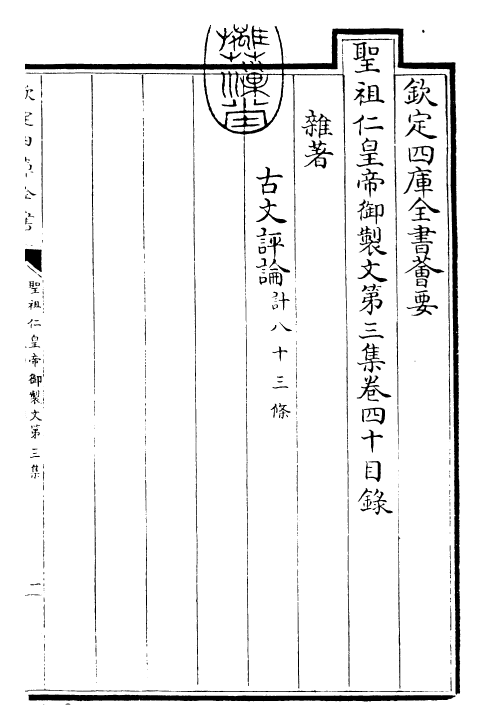 欽定四庫全書薈要
聖祖仁皇帝御製文第三集卷四十目錄
雜著
古文評論計八十三條
聖祖仁皇帝御製文第三集